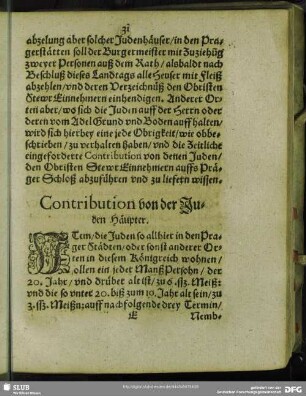 31
abzelung aber solcher Judenhäuser/in den Pra-
gerstätten soll der Burgermeister mit Zuziehūg
zweyer Personen auß dem Rath/alsbald nach
Beschluß dieses Landtags alle Heuser mit Fleiß
abzehlen/vnd deren Verzeichnüß den Obristen
Stewr Einnehmern einhendigen. Anderer Or-
ten aber/wo sich die Juden auff der Herrn oder
deren vom Adel Grund vnd Boden auff halten/
wird sich hierbey eine jede Obrigkeit/wie obbe-
schrieben/zu verhalten haben/vnd die Zeitliche
eingeforderte Contribution von denen Juden/
den Obristen Stewr Einnehmern auffs Pra-
ger Schloß abzuführen vnd zu liefern wissen.
Contribution von der Ju-
den Häupter.
ITem/die Juden so allhier in den Pra-
ger Städten/oder sonst anderer Or-
ten in diesem Königreich wohnen/
sollen ein jedet Manß Persohn/der
20. Jahr/vnd drüber alt ist/zu 6. ssz. Meißn:
vnd die so vnter 20. biß zum 10. Jahr alt sein/zu
3. ssz. Meißn: auff nachfolgende drey Termin/
E
Nemb-
SLUB
Wir führen Wissen.
gefördert von der
DFG